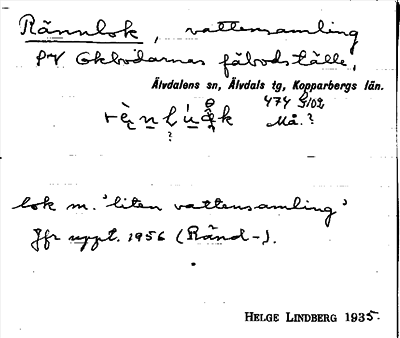 Rännlok, vattensamling
på Ekbodarnas fäbodställe,
Älvdalens sn, Älvdals tg, Kopparbergs län.
474 G/02
Må.?
lok m. 'liten vattensamling'
Jfr uppt. 1956 (Ränd-).
HELGE LINDBERG 1935.